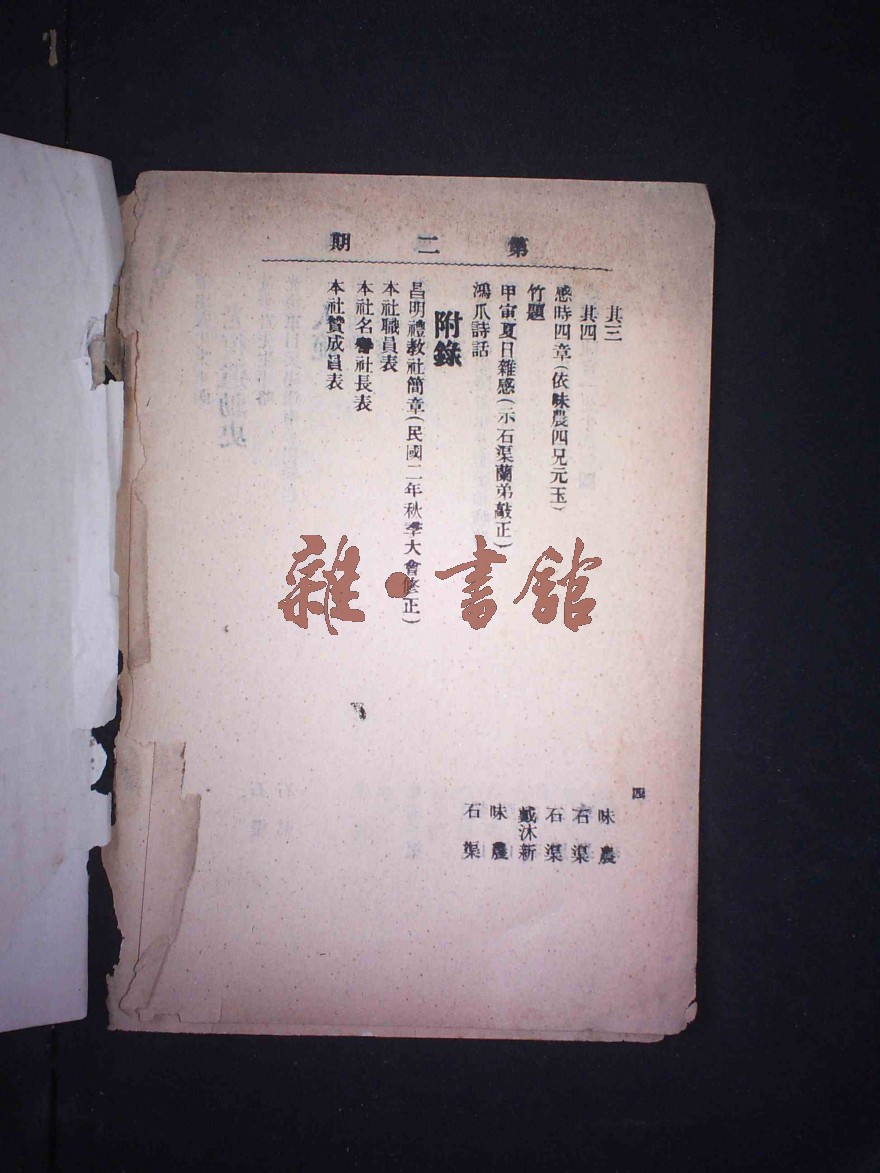 第二期
其三 味農
其四 石渠
感時四章(依味農四兄元玉) 石渠
竹題 戴沐新
甲寅夏日雜感(示石渠蘭弟敲正) 味農
鴻爪詩話 石渠
附錄
昌明禮教社簡章(民國二年秋季大會修正)
本社職員表
本社名譽社長表
本社贊成員表
四
雜·書館